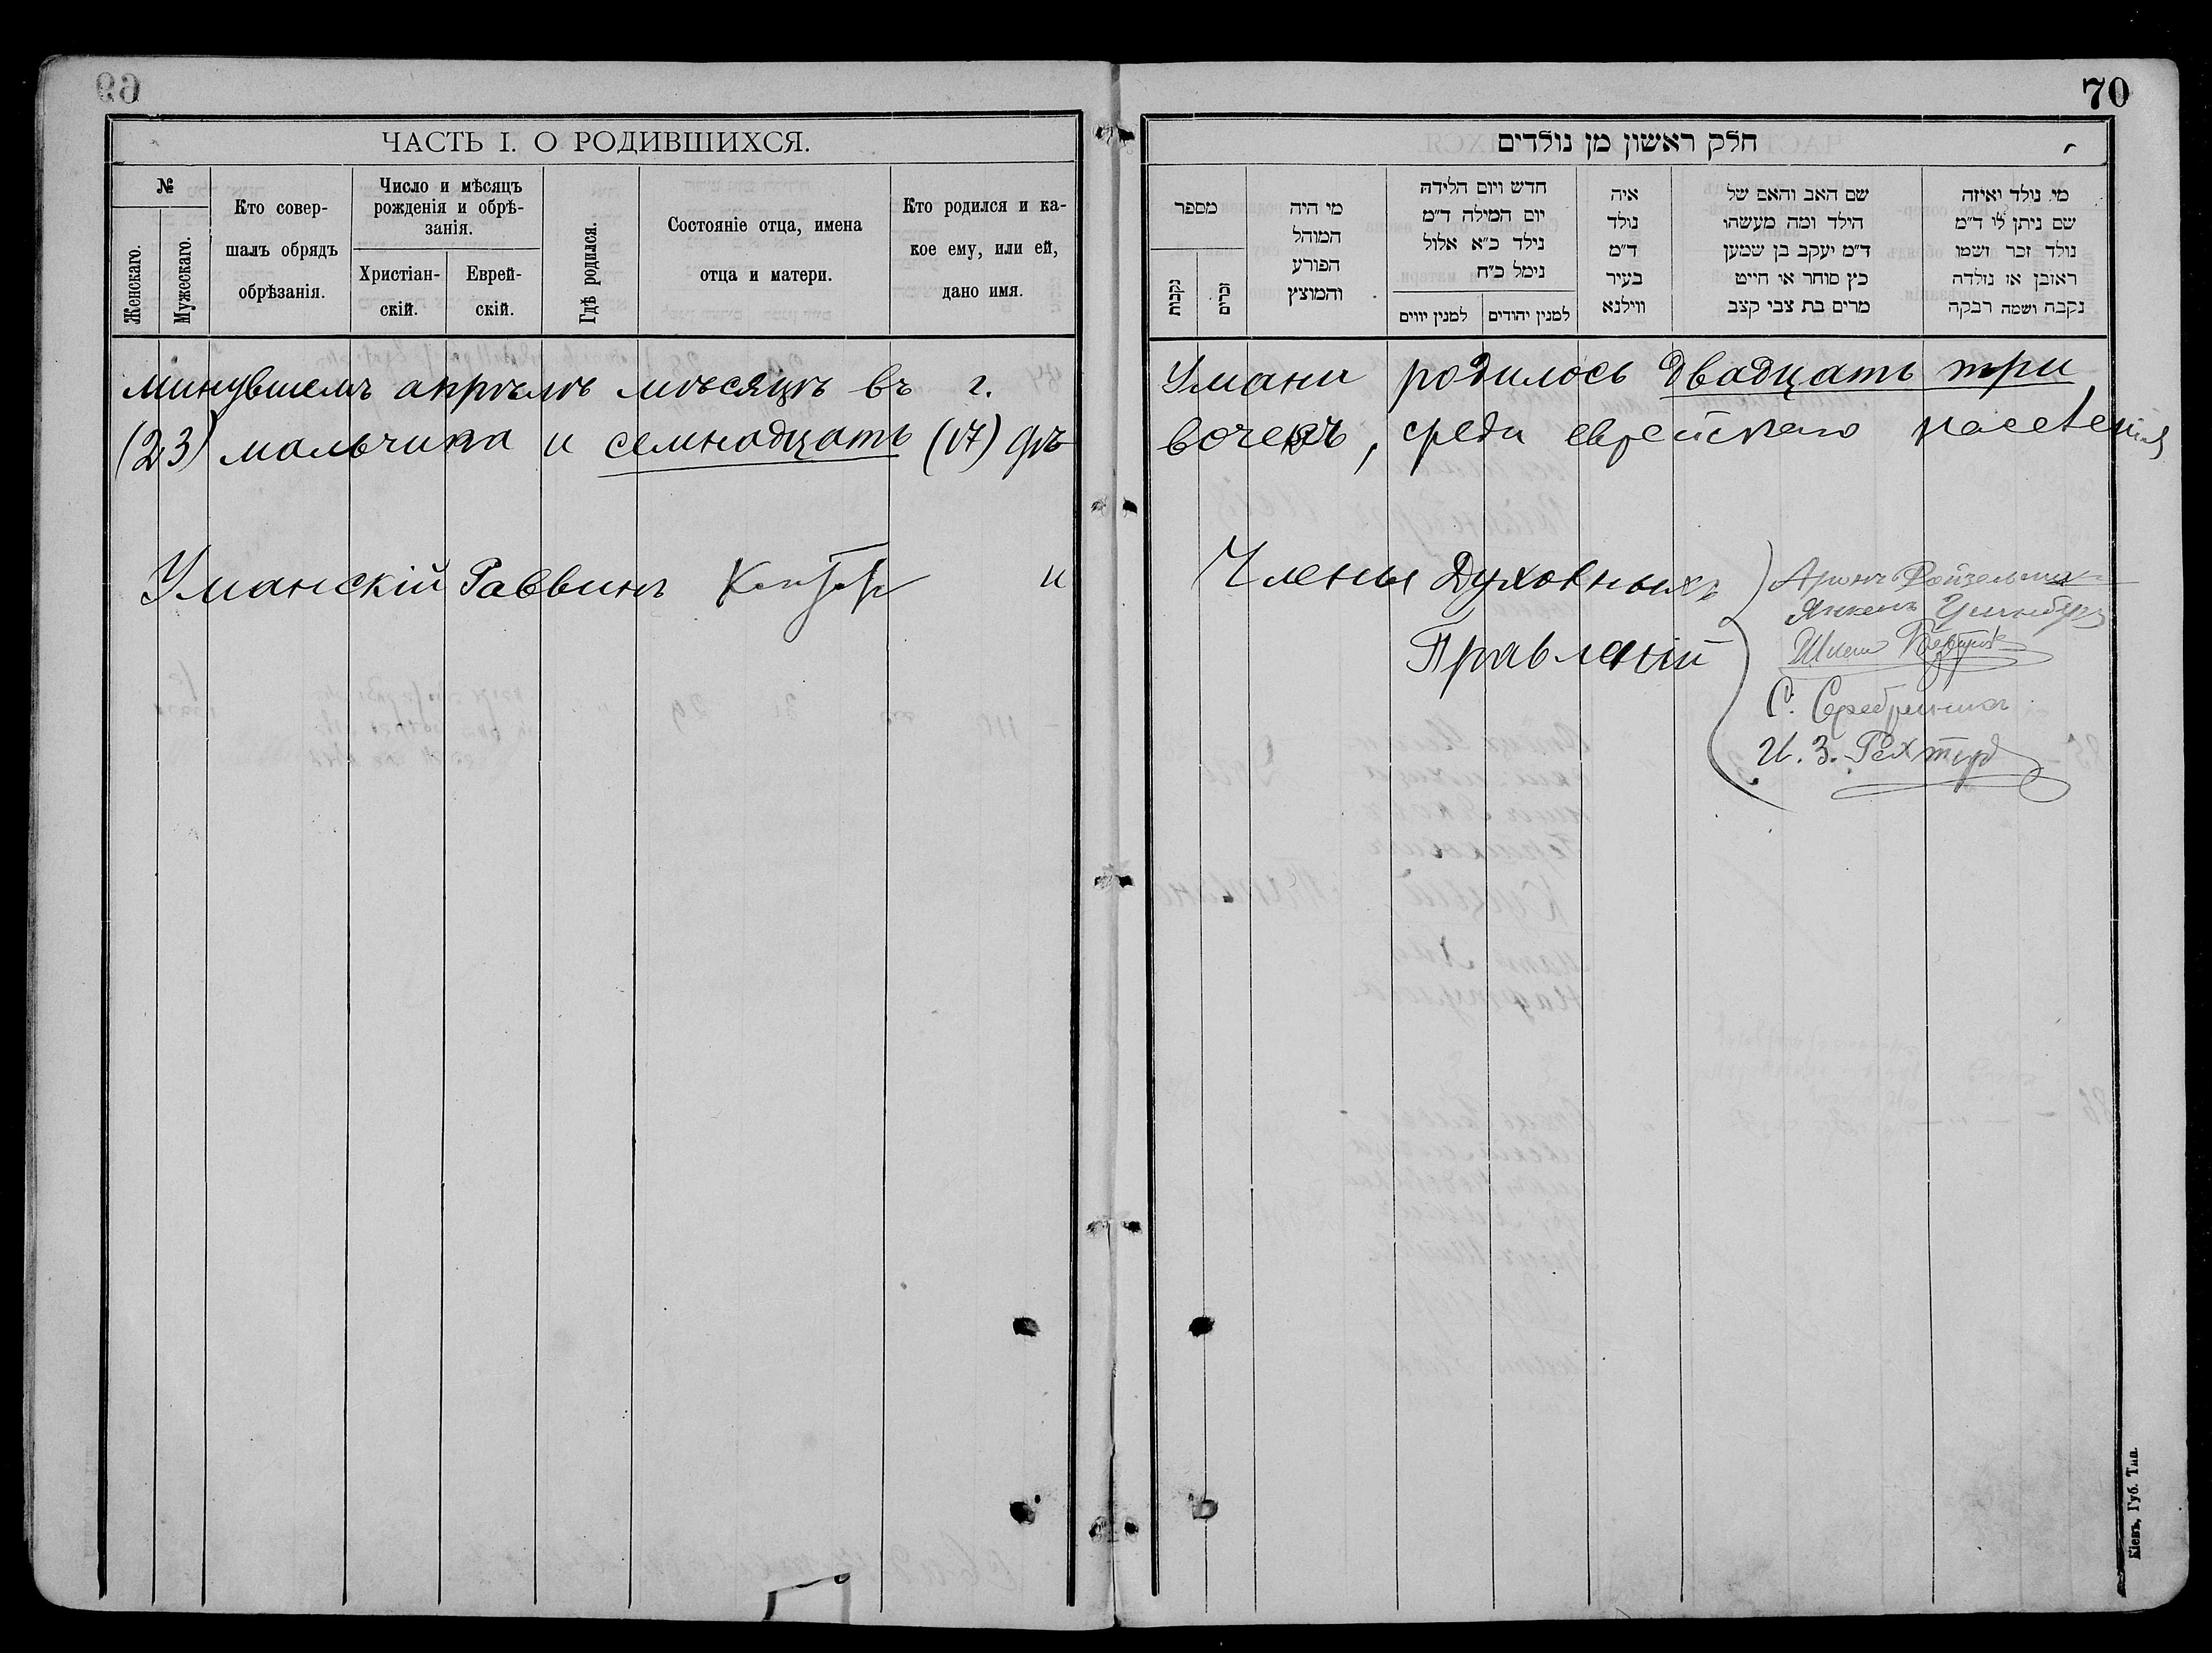 69
ЧАСТЬ I. О РОДИВШИХСЯ.
№
Женскаго.
Мужескаго.
Кто совер-
шалъ обрядъ
обрѣзанія.
Число и мѣсяцъ
рожденія и обрѣ-
занія.
Христіан-
скій.
Еврей-
скій.
Гдѣ родился.
Состояніе отца, имена
отца и матери.
Кто родился и ка-
кое ему, или ей,
дано имя.
минувшемъ апрѣлѣ мѣсяцѣ въ г.
(23) мальчика и семнадцать (17) дѣ
Уманскій Раввинъ и
70
חלק ראשון מן נולדים
מי נולד ואיזה
שם ניתן לו ד"מ
נולד זכר ושמו
ראובן או נולדה
נקבה ושמה רבקה
שם האב והאם של
הילד ומה מעשהו
ד"מ יעקב בן שמען
כץ סוחר או חייט
מרים בת צבי קצב
איה
נולד
ד"מ
בעיר
ווילנא
חדש ויום הלידה
יום המילה ד"מ
נילד כ"א אלול
נימל כ"ח
למנין יהודים
למנין יווים
מי היה
המוהל
הפורע
והמוצץ
מספר
זכרים
נקבות
Умани родилось двадцать три
вочекъ, среди еврейскаго населенія
Члены Духовныхъ
Правленій
Аронъ Ройзельман
С. Серебрянникъ
И. З. Рехтеръ
Кіевъ, Губ. Тип.